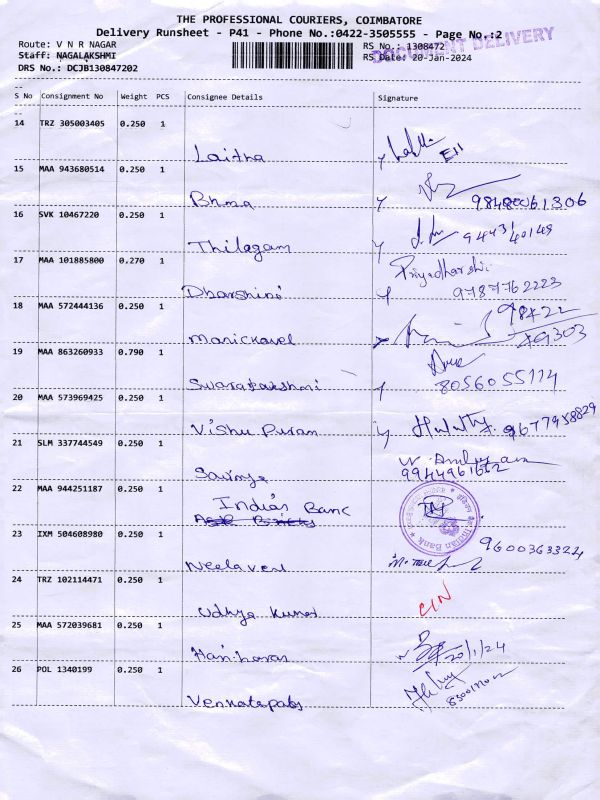 THE PROFESSIONAL COURIERS, COIMBATORE
Delivery Runsheet - P41 - Phone No.:0422-3505555 - Page No.:2
Route: V N R NAGAR
RS No.: 1308472
DOCUMENT DELIVERY
Staff: NAGALAKSHMI
RS Date: 20-Jan-2024
DRS No.: DCJB130847202
S No Consignment No Weight PCS Consignee Details Signature
14 TRZ 305003405 0.250 1
Laitha
EII
15 MAA 943680514 0.250 1
Bhma
9848061306
16 SVK 10467220 0.250 1
Thilagam
9443140149
17 MAA 101885800 0.270 1
Priyadharshi
Dharshini
9787762223
18 MAA 572444136 0.250 1
98422
Manickavel
49303
19 MAA 863260933 0.790 1
Swarnalakshmi
8056055114
20 MAA 573969425 0.250 1
Vishu Puram
9677958829
21 SLM 337744549 0.250 1
Sowmya
9944961662
22 MAA 944251187 0.250 1
Indian Bank
Indian Bank
23 IXM 504608980 0.250 1
9600363324
Neelaveni
24 TRZ 102114471 0.250 1
C/N
Udhya Kumar
25 MAA 572039681 0.250 1
Hariharan
20/1/24
26 POL 1340199 0.250 1
Venkatapaty